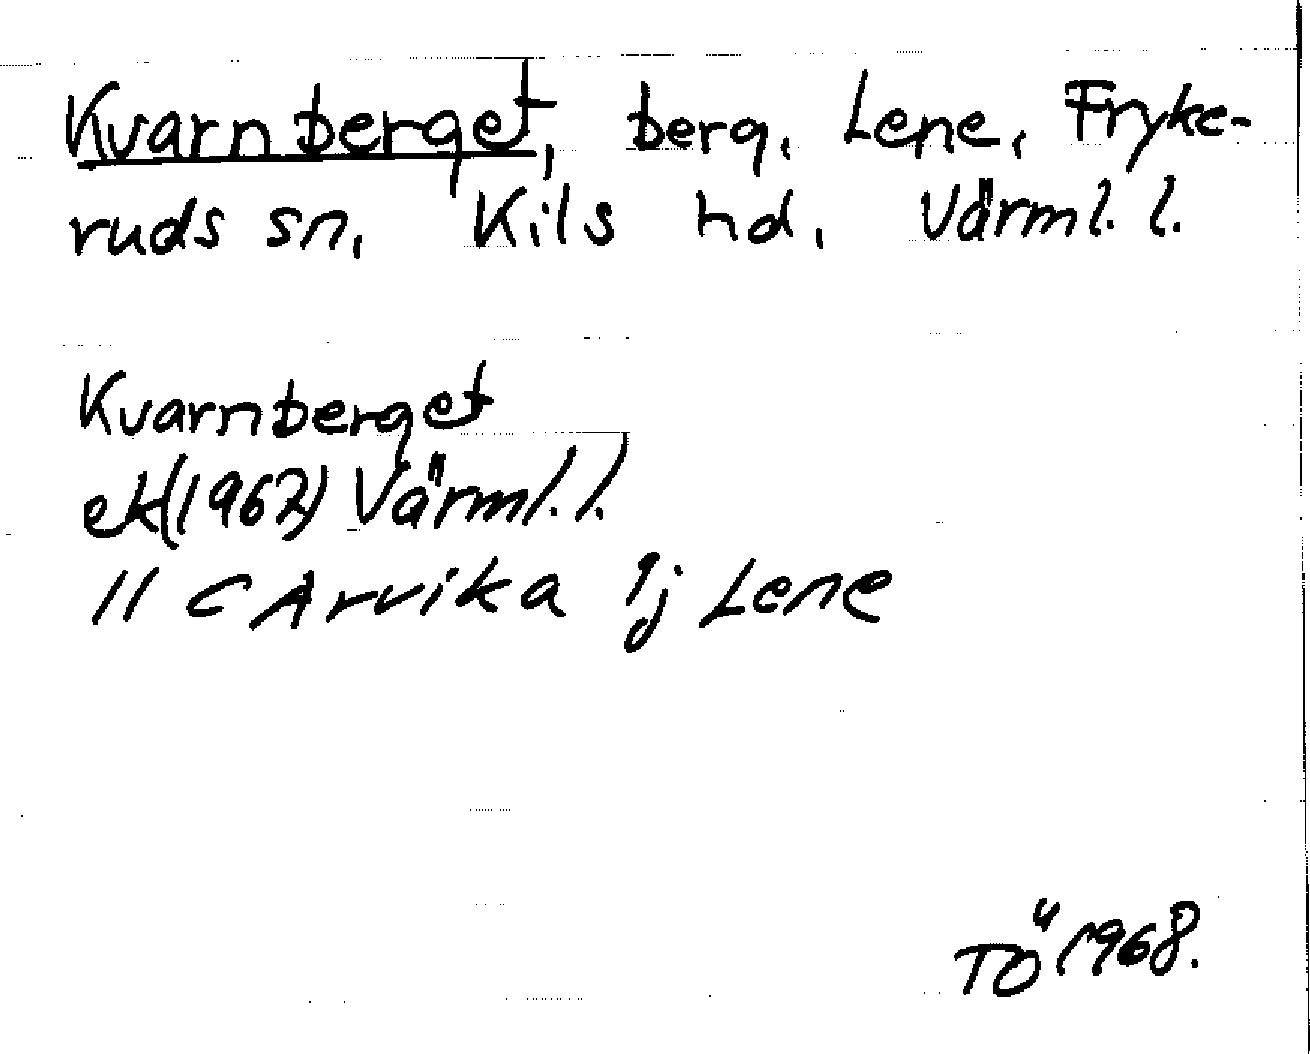 Kvarnberget, berg, Lene, Fryke-
ruds sn, Kils hd, Värml. l.
Kvarnberget
ek(1967) Värml. l.
11 C Arvika 9j Lene
TÖ 1968.